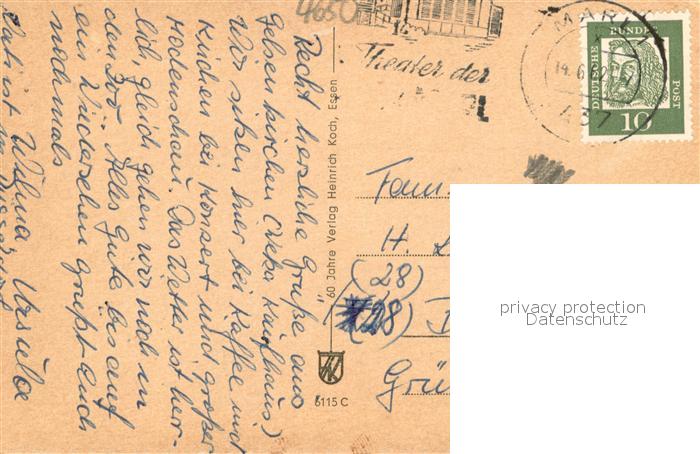 4650
MARL
14.6.62
Theater der
DEUTSCHE
BUNDES
POST
10
Recht herzliche Grüße aus
Gelsenkirchen (Weka Kaufhaus)
Wir sitzen hier bei Kaffee und
Kuchen bei Konzert und großer
Modenschau. Das Wetter ist herr-
lich, gleich gehen wir noch in
den Zoo. Alles Gute bis auf
ein Wiedersehen grüßt Euch
nochmals
Wilma Ursula
60 Jahre Verlag Heinrich Koch, Essen
6115 C
Fam
H.
(28)
(28)
Grü
privacy protection
Datenschutz